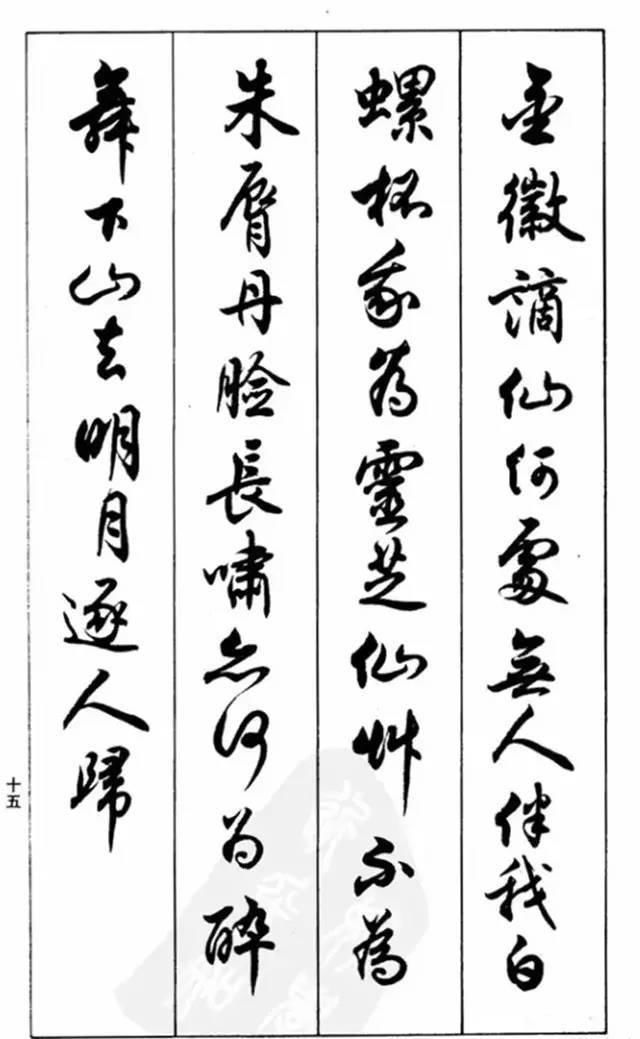 金徽謫仙何處無人伴我白
螺杯我為靈芝仙艸不為
朱脣丹臉長嘯亦何為醉
舞下山去明月逐人歸
十五